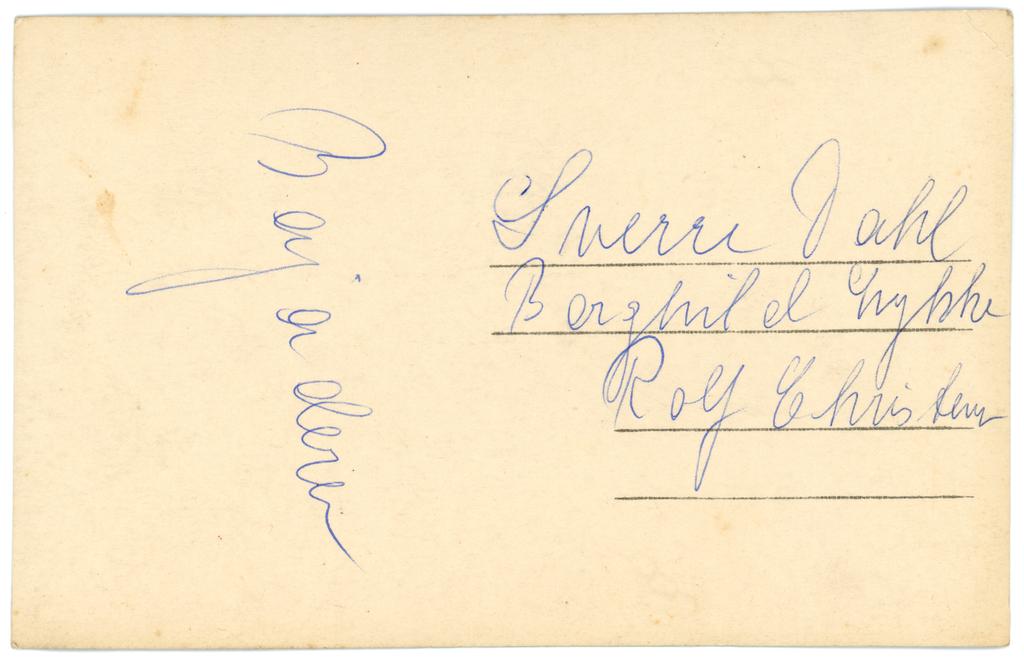 Bajaderen
Sverre Dahl
Borghild Lykke
Rolf Christens